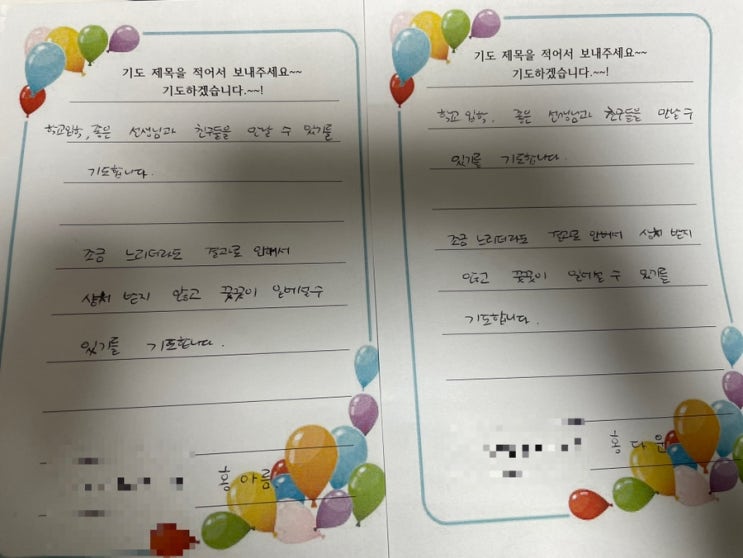 기도 제목을 적어서 보내주세요~~
기도하겠습니다.~~!
학교입학, 좋은 선생님과 친구들을 만날 수 있기를
기도합니다.
조금 느리더라도 결과로 인해서
상처 받지 않고 꿋꿋이 일어설수
있기를 기도합니다.
홍아름
기도 제목을 적어서 보내주세요~~
기도하겠습니다.~~!
학교입학, 좋은 선생님과 친구들을 만날 수
있기를 기도합니다.
조금 느리더라도 결과로 인해서 상처 받지
않고 꿋꿋이 일어설 수 있기를
기도합니다.
홍다운